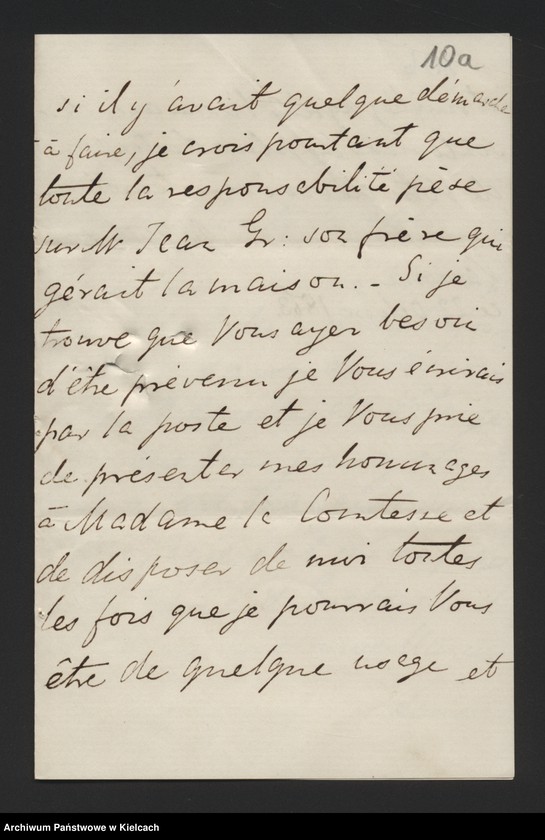 10a
si il y avait quelque démarche
à faire, je crois pourtant que
toute la responsabilité pèse
sur Mr Jean Gr: son frère qui
gérait la maison. - Si je
trouve que Vous ayez besoin
d'être prévenu je Vous écrirais
par la poste et je Vous prie
de présenter mes hommages
à Madame la Comtesse et
de disposer de moi toutes
les fois que je pourrais Vous
être de quelque usage et
Archiwum Państwowe w Kielcach